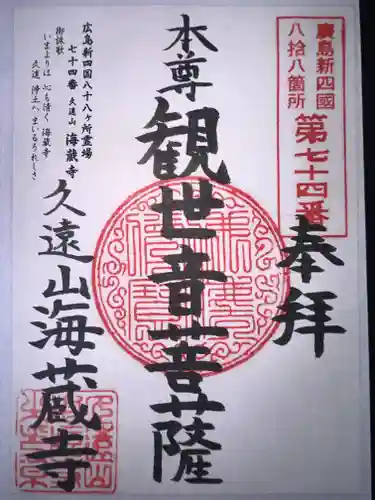 廣島新四國
八拾八箇所
第七十四番
奉拝
本尊
観世音菩薩
広島新四国八十八ヶ所霊場
七十四番 久遠山 海蔵寺
御詠歌
いまよりは 心も清く 海蔵寺
久遠 浄土へ まいるうれしさ
久遠山海蔵寺